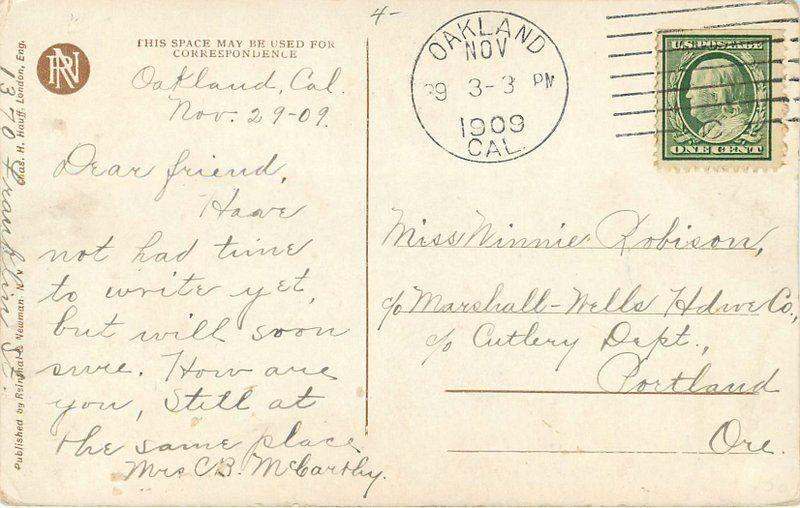 4-
THIS SPACE MAY BE USED FOR
CORRESPONDENCE
RN
Oakland, Cal.
Nov. 29-09.
Dear friend,
Have
not had time
to write yet,
but will soon
sure. How are
you, Still at
the same place
Mrs C.B. McCarthy.
1370 Franklin St.
Chas. H. Hauff, London, Eng.
Published by Reinthal & Newman, N.Y.
OAKLAND
NOV
29 3-3 PM
1909
CAL.
U.S. POSTAGE
ONE CENT
Miss Winnie Robison,
c/o Marshall-Wells Hdwe Co.,
c/o Cutlery Dept.,
Portland
Ore.